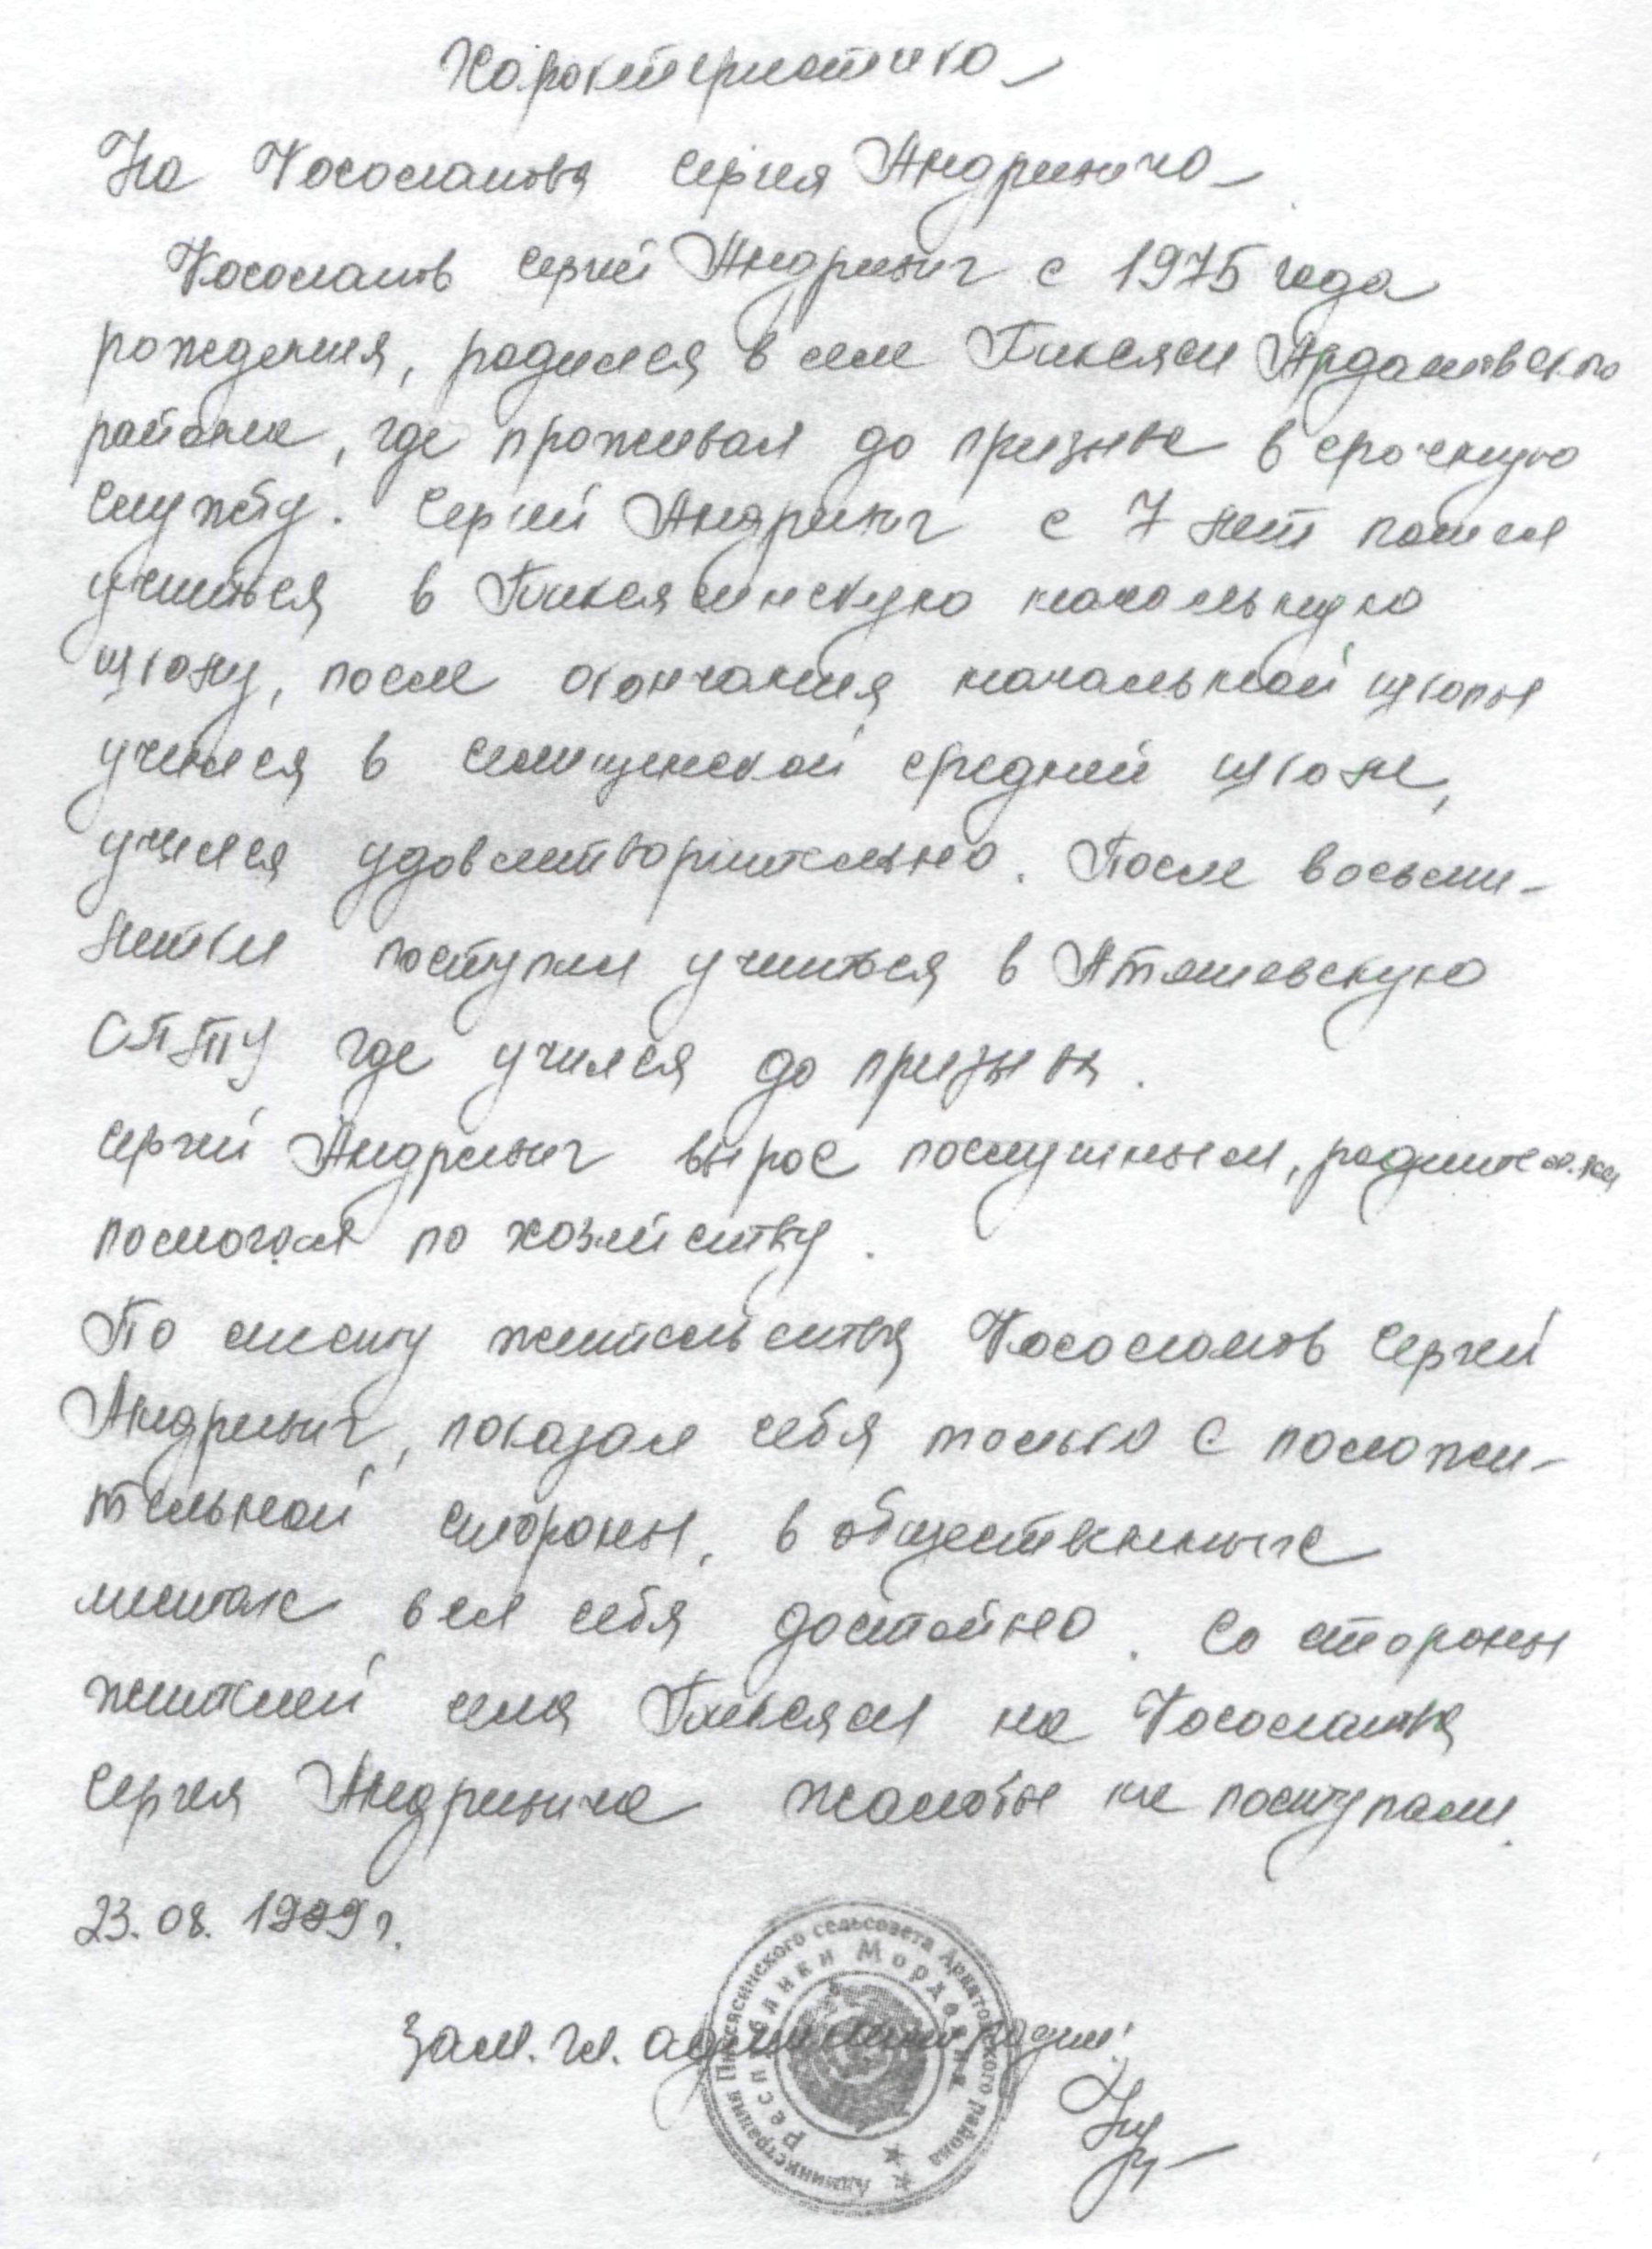 Характеристика
На Кососламова Сергея Андреевича
Кососламов Сергей Андреевич с 1975 года
рождения, родился в селе Пиксяси Ардатовского
района, где проживал до призыва в срочную
службу. Сергей Андреевич с 7 лет пошел
учиться в Пиксясинскую начальную
школу, после окончания начальной школы
учился в  средней школе,
учился удовлетворительно. После восьми-
летки поступил учиться в Атяшевскую
СПТУ где учился до призыва.
Сергей Андреевич вырос послушным, родителям
помогал по хозяйству.
По месту жительства Кососламов Сергей
Андреевич, показал себя только с положи-
тельной стороны, в общественных
местах вел себя достойно. Со стороны
жителей села Пиксяси на Кососламова
Сергея Андреевича жалобы не поступали.
23.08.1999 г.
Зам. гл. администрации:
Администрация Пиксясинского сельсовета Ардатовского района
Республики Мордовия